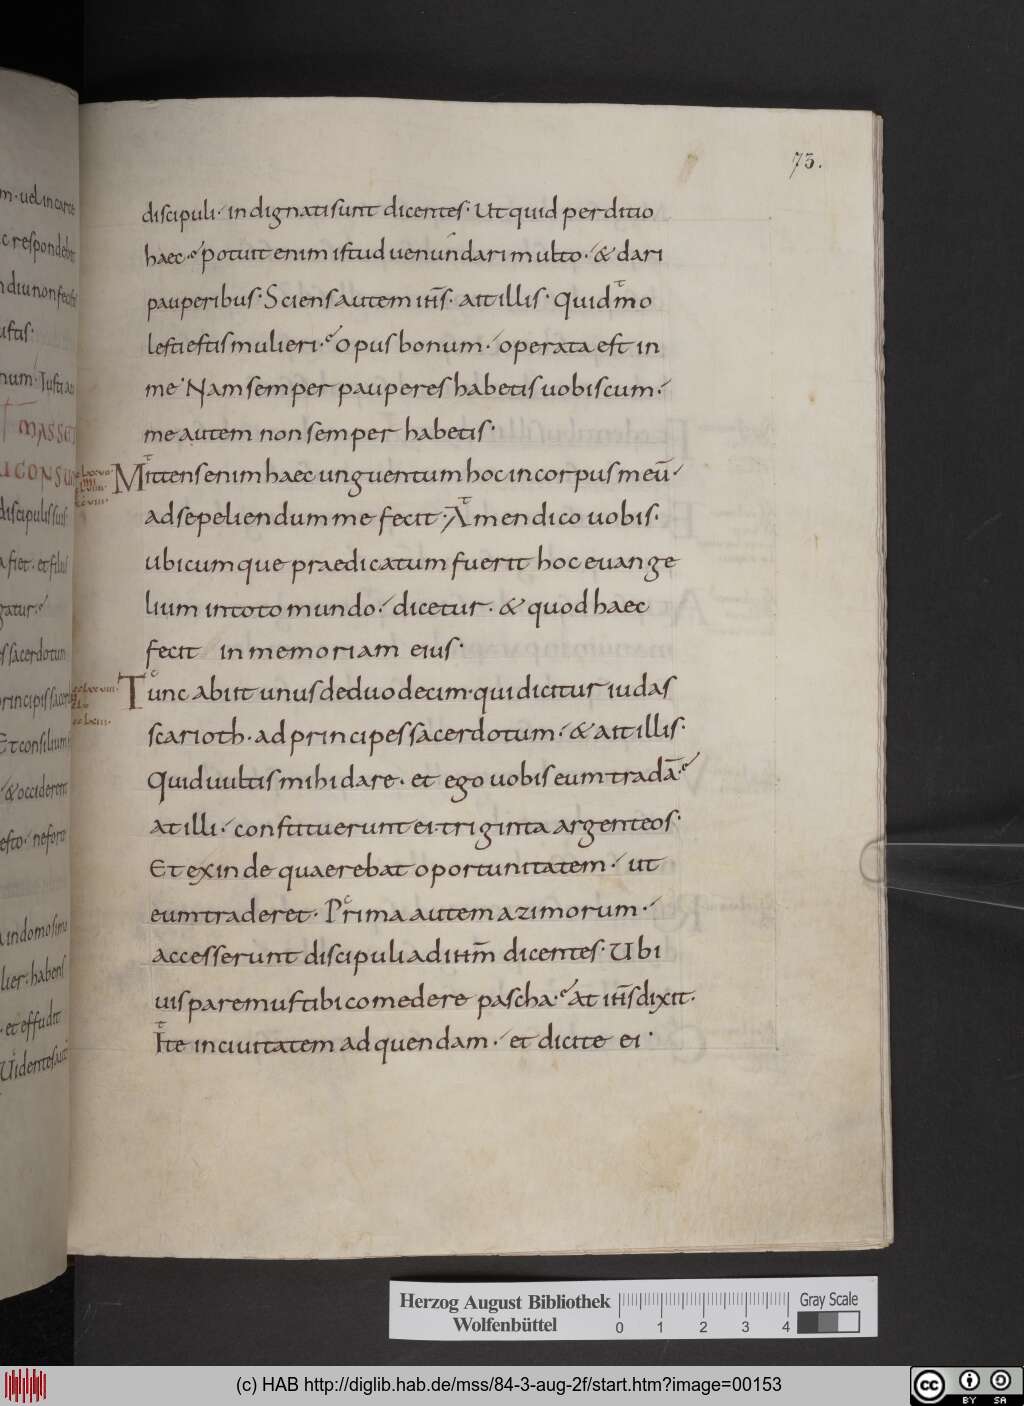 75.
discipuli· indignati sunt dicentes· Ut quid perditio
haec· potuit enim istud uenundari multo· & dari
pauperibus· Sciens autem ihs· ait illis· Quid mo
lesti estis mulieri· opus bonum· operata est in
me· Nam semper pauperes habetis uobiscum·
me autem non semper habetis·
Mittens enim haec unguentum hoc in corpus meū·
ad sepeliendum me fecit· Amen dico uobis·
ubicumque praedicatum fuerit hoc euange
lium in toto mundo· dicetur· & quod haec
fecit in memoriam eius·
Tunc abiit unus de duodecim· qui dicitur iudas
scarioth· ad principes sacerdotum· & ait illis·
Quid uultis mihi dare· et ego uobis eum tradā·
at illi· constituerunt ei· triginta argenteos·
Et exinde quaerebat oportunitatem· ut
eum traderet· Prima autem azimorum·
accesserunt discipuli ad ihm dicentes· Ubi
uis paremus tibi comedere pascha· at ihs dixit·
Ite in ciuitatem ad quendam· et dicite ei·
Herzog August Bibliothek
Wolfenbüttel
0 1 2 3 4
Gray Scale
(c) HAB http://diglib.hab.de/mss/84-3-aug-2f/start.htm?image=00153
cc BY SA